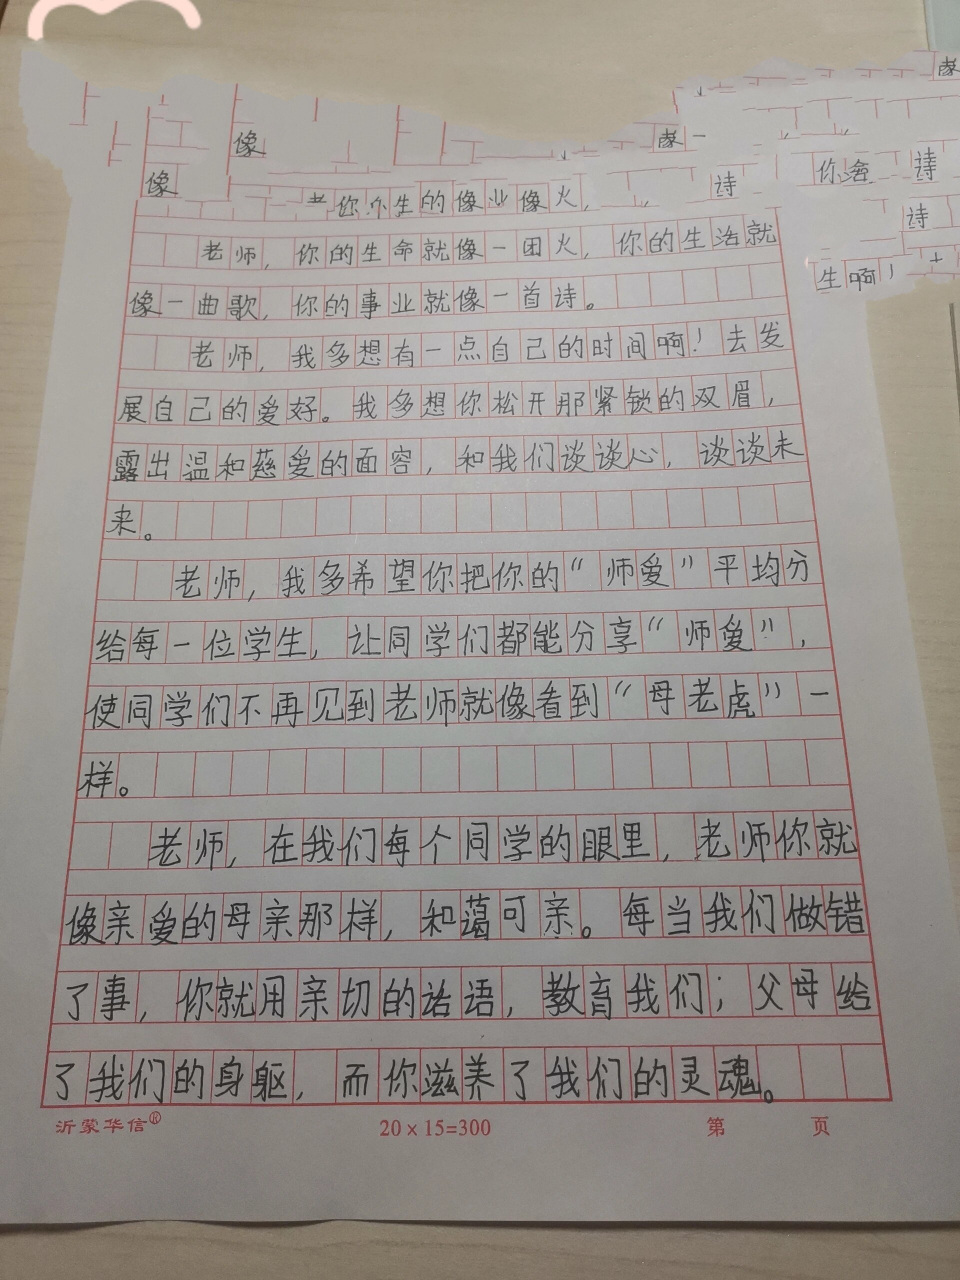 像
像
诗
你
诗
诗
生啊！
老师，你的生命就像一团火，你的生活就
像一曲歌，你的事业就像一首诗。
老师，我多想有一点自己的时间啊！去发
展自己的爱好。我多想你松开那紧锁的双眉，
露出温和慈爱的面容，和我们谈谈心，谈谈未
来。
老师，我多希望你把你的“师爱”平均分
给每一位学生，让同学们都能分享“师爱”，
使同学们不再见到老师就像看到“母老虎”一
样。
老师，在我们每个同学的眼里，老师你就
像亲爱的母亲那样，和蔼可亲。每当我们做错
了事，你就用亲切的话语，教育我们；父母给
了我们的身躯，而你滋养了我们的灵魂。
沂蒙华信® 20×15=300 第 页